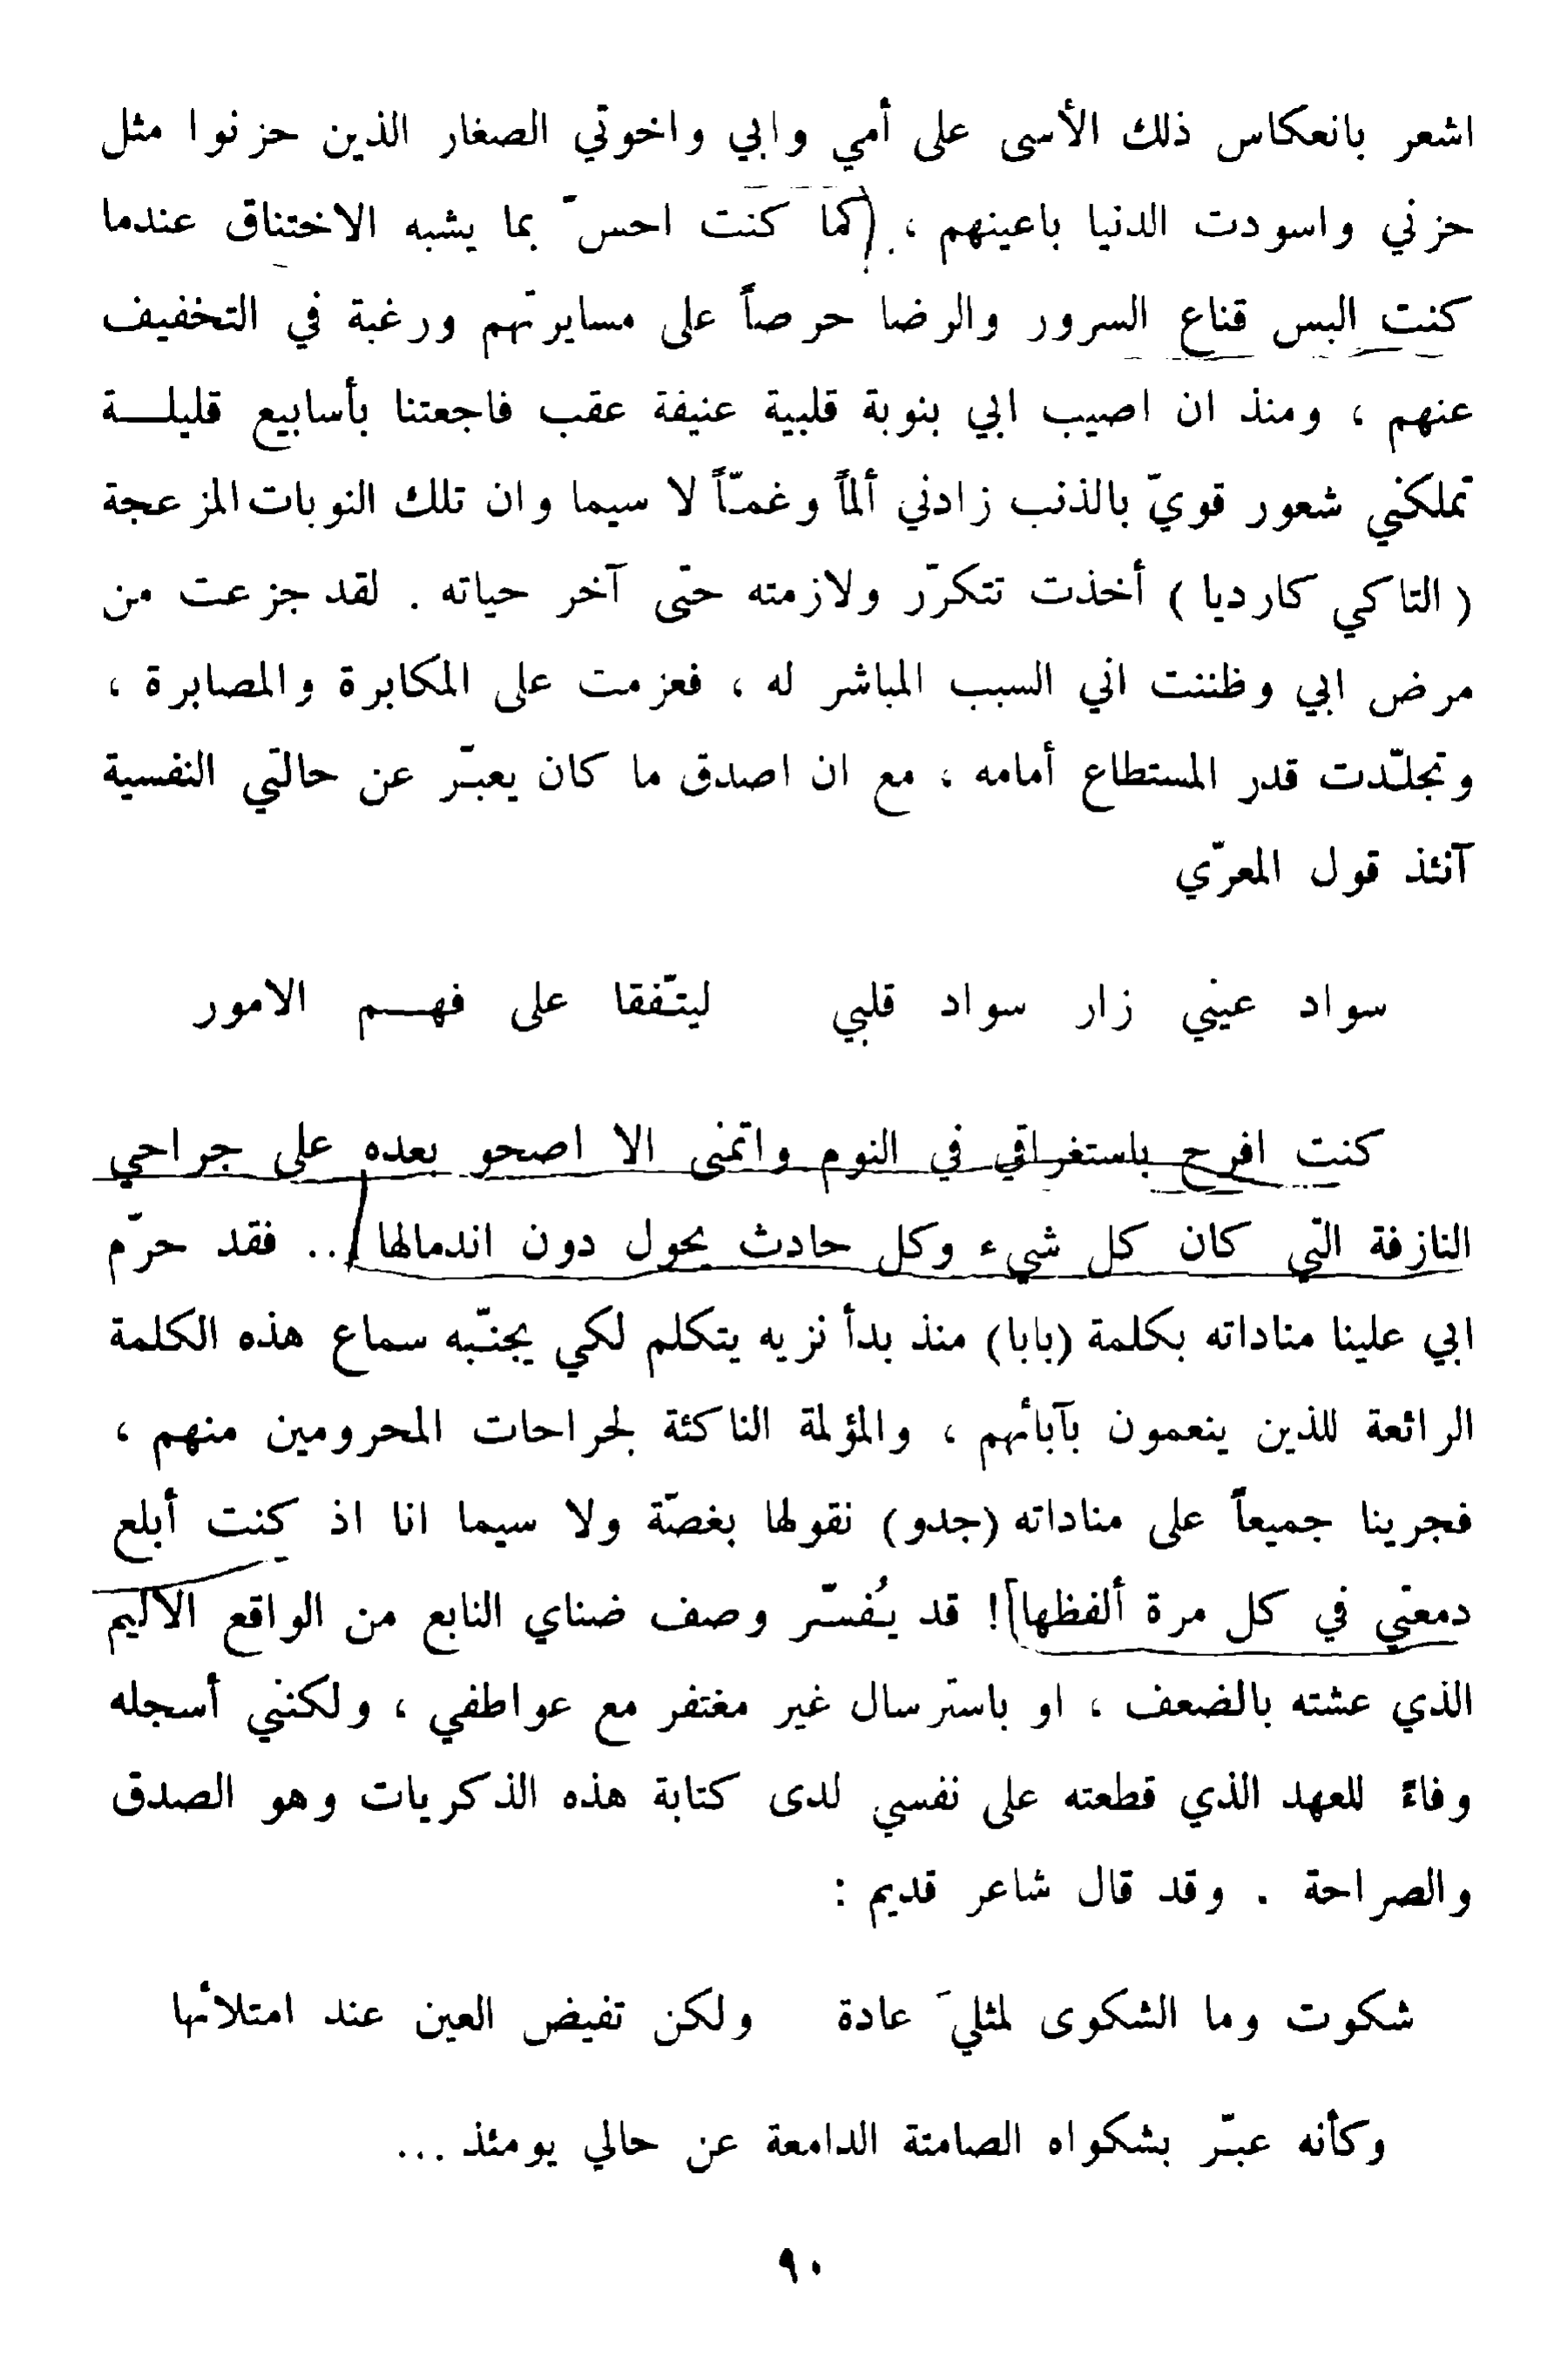 اشعر بانعكاس ذلك الأسى على أمي وابي واخوتي الصغار الذين حزنوا مثل
حزني واسودت الدنيا باعينهم ، (كما كنت احسّ بما يشبه الاختناق عندما
كنت البس قناع السرور والرضا حرصاً على مسايرتهم ورغبة في التخفيف
عنهم ، ومنذ ان اصيب ابي بنوبة قلبية عنيفة عقب فاجعتنا بأسابيع قليلة
تملكني شعور قويّ بالذنب زادني ألماً وغمّاً لا سيما وان تلك النوبات المزعجة
( التاكي كارديا ) أخذت تتكرّر ولازمته حتى آخر حياته . لقد جزعت من
مرض ابي وظننت اني السبب المباشر له ، فعزمت على المكابرة والمصابرة ،
وتجلّدت قدر المستطاع أمامه ، مع ان اصدق ما كان يعبّر عن حالتي النفسية
آنئذ قول المعرّي
سواد عيني زار سواد قلبي ليتّفقا على فهم الامور
كنت افرح باستغراقي في النوم واتمنى الا اصحو بعده على جراحي
النازفة التي كان كل شيء وكل حادث يحول دون اندمالها ... فقد حرّم
ابي علينا مناداته بكلمة (بابا) منذ بدأ نزيه يتكلم لكي يجنّبه سماع هذه الكلمة
الرائعة للذين ينعمون بآبائهم ، والمؤلمة الناكئة لجراحات المحرومين منهم ،
فجرينا جميعاً على مناداته (جدو) نقولها بغصّة ولا سيما انا اذ كنت أبلع
دمعتي في كل مرة ألفظها]! قد يُفسّر وصف ضناي النابع من الواقع الاليم
الذي عشته بالضعف ، او باسترسال غير مغتفر مع عواطفي ، ولكنني أسجله
وفاءً للعهد الذي قطعته على نفسي لدى كتابة هذه الذكريات وهو الصدق
والصراحة . وقد قال شاعر قديم :
شكوت وما الشكوى لمثليَ عادة ولكن تفيض العين عند امتلائها
وكأنه عبّر بشكواه الصامتة الدامعة عن حالي يومئذ ...
٩٠